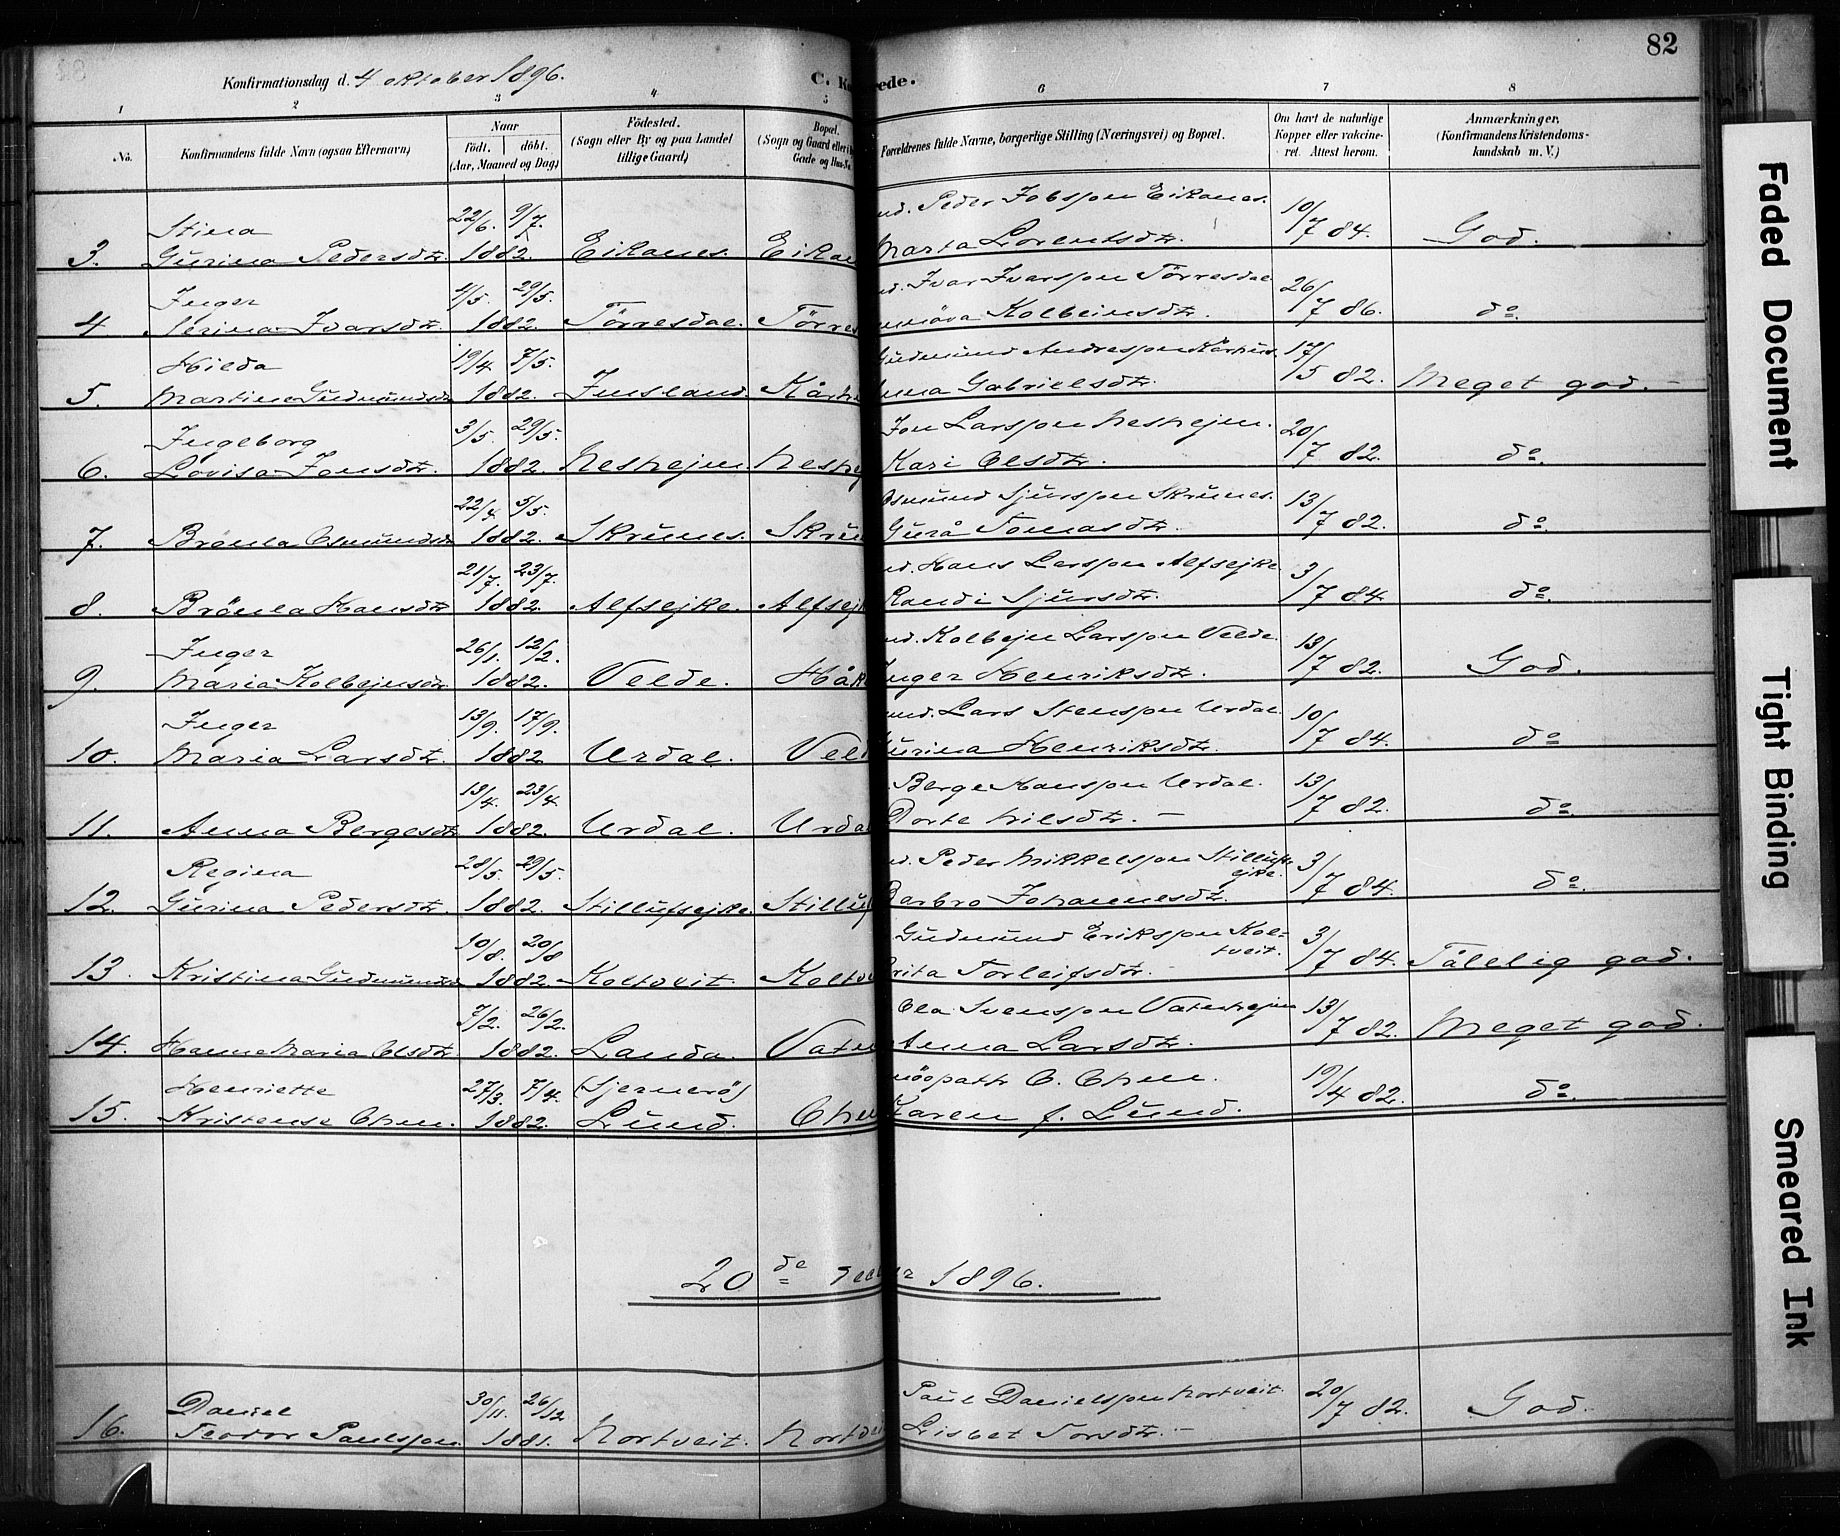 82
Konfirmationsdag d. 4 oktober 1896.
C. Ko rede.
1 2 3 4 5 6 7 8
No.
Konfirmandens fulde Navn (ogsaa Efternavn)
Naar
Födt. döbt.
(Aar, Maaned og Dag)
Födested.
(Sogn eller By og paa Landet
tillige Gaard)
Bopæl.
(Sogn og Gaard eller i
Gade og Hus-No
Forældrenes fulde Navne, borgerlige Stilling (Næringsvei) og Bopæl.
Om havt de naturlige
Kopper eller vakcine-
ret. Attest herom.
Anmærkninger,
(Konfirmandens Kristendoms-
kundskab m. V.)
Stina 22/6. 9/7. Peder Jobsson Eikanes. 10/7 84.
3. Gurina Pedersdtr. 1882. Eikanes. Eikan Marta Lorentsdtr. God.
Inger 4/5. 29/5. Ivar Ivarsson Törresdal 26/7 86.
4 Serina Ivarsdtr. 1882. Törresdal. Törres Kolbeinsdtr. do.
Hilda 19/4 7/5. Gudmund Andresson Kårhus. 17/5 82.
5. Martine Gudmundsdtr 1882. Imsland. Kårh Anna Gabrielsdtr. Meget god.
Ingeborg 3/5. 29/5. Jon Larsson Neshejm. 20/7 82.
6. Lovisa Jonsdtr. 1882. Neshejm. Neshej Kari Olsdtr. do.
22/4 5/5. Osmund Sjursson Skrunes. 13/7 82.
7. Brönla Osmundsdtr 1882. Skrunes. Skrun Gurå Tomasdtr. do.
21/7. 23/7. Hans Larsson Alfsejke 3/7 84.
8. Brönla Hansdtr 1882. Alfsejke. Alfsejk Randi Sjursdtr. do.
Inger 26/1. 12/2. Kolbejn Larsson Velde. 13/7 82.
9. Maria Kolbejnsdtr 1882. Velde. Håk Inger Henriksdtr. God.
Inger 13/9. 17/9. Lars Stensson Urdal. 10/7 84.
10. Maria Larsdtr. 1882. Urdal. Vel Gurina Henriksdtr. do
13/4. 23/4 Berge Hansson Urdal. 13/7 82.
11. Anna Bergesdtr 1882. Urdal. Urda Dorte Nilsdtr. do
Regina 28/5. 29/5. Peder Mikkelsson Stillufs-
ejke. 3/7 84.
12. Gurina Pedersdtr. 1882. Stillufsejke. Stilluf Barbro Johannesdtr. do.
10/8. 20/8 Gudmund Eriksson Kol-
tveit. 3/7 84.
13. Kristina Gudmundsdtr 1882. Koltveit. Koltv Brita Torleifsdtr. Tålelig god.
7/2. 26/2. Ola Svensson Vatnehejm 13/7 82.
14. Hanne Maria Olsdtr. 1882. Landa. Vatn Anna Larsdtr. Meget god.
Henriette 27/3. 7/4. (Sjernerö) möopath O. 19/4 82.
15. Kristense 1882. Lund. Karen f. Lund. do.
20de 1896.
Daniel 30/11. 26/12 Paul Danielsson Nortveit. 20/7 82.
16. Teodor Paulsson. 1881. Nortveit. Nortvei Lisbet Torsdtr. God.
Faded Document
Tight Binding
Smeared Ink